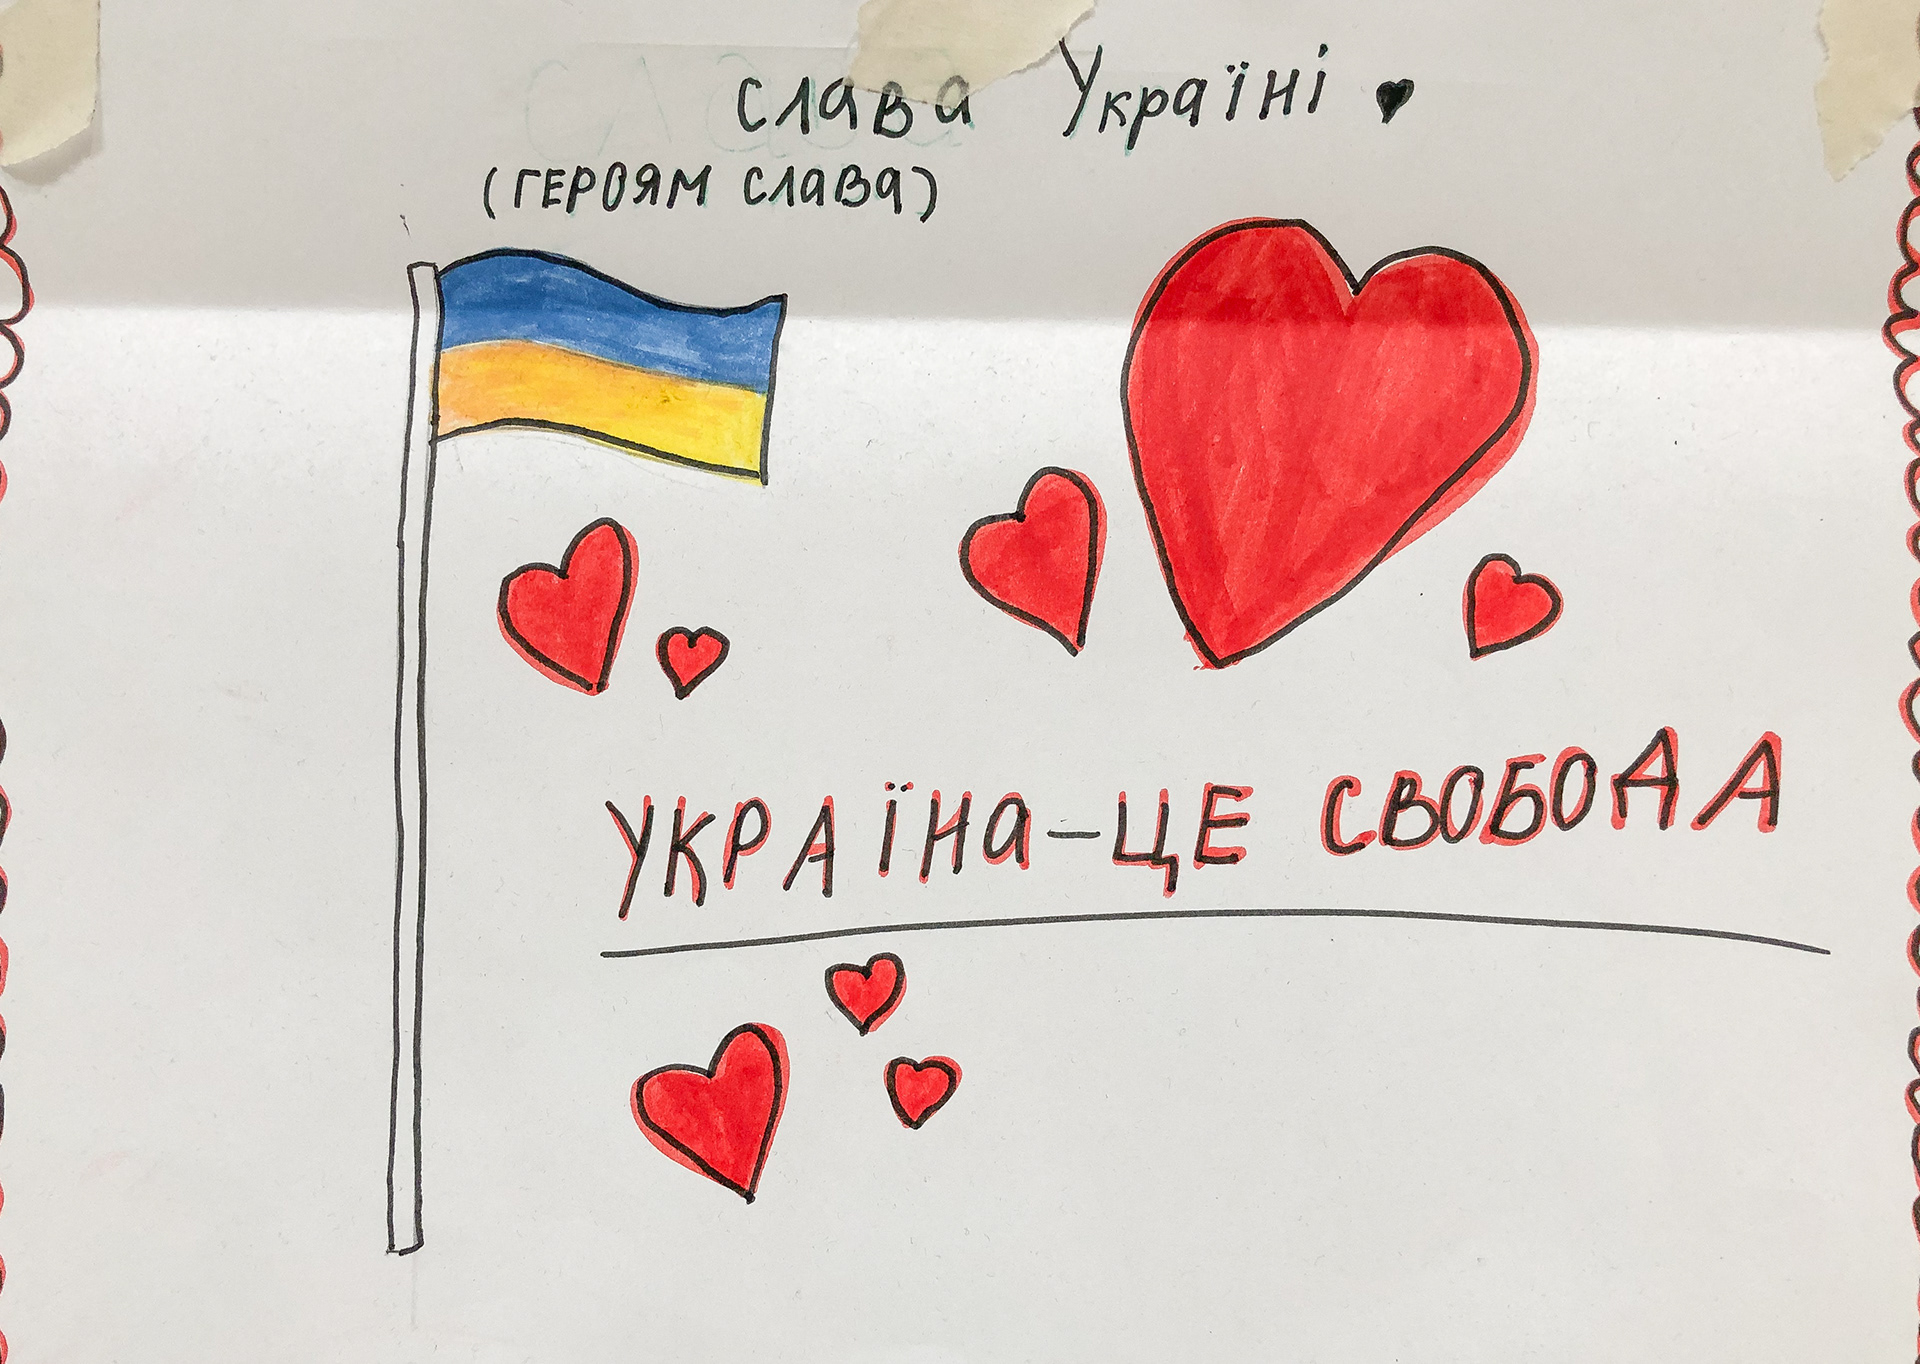 слава Україні
(ГЕРОЯМ СЛАВА)
УКРАЇНА-ЦЕ СВОБОДА